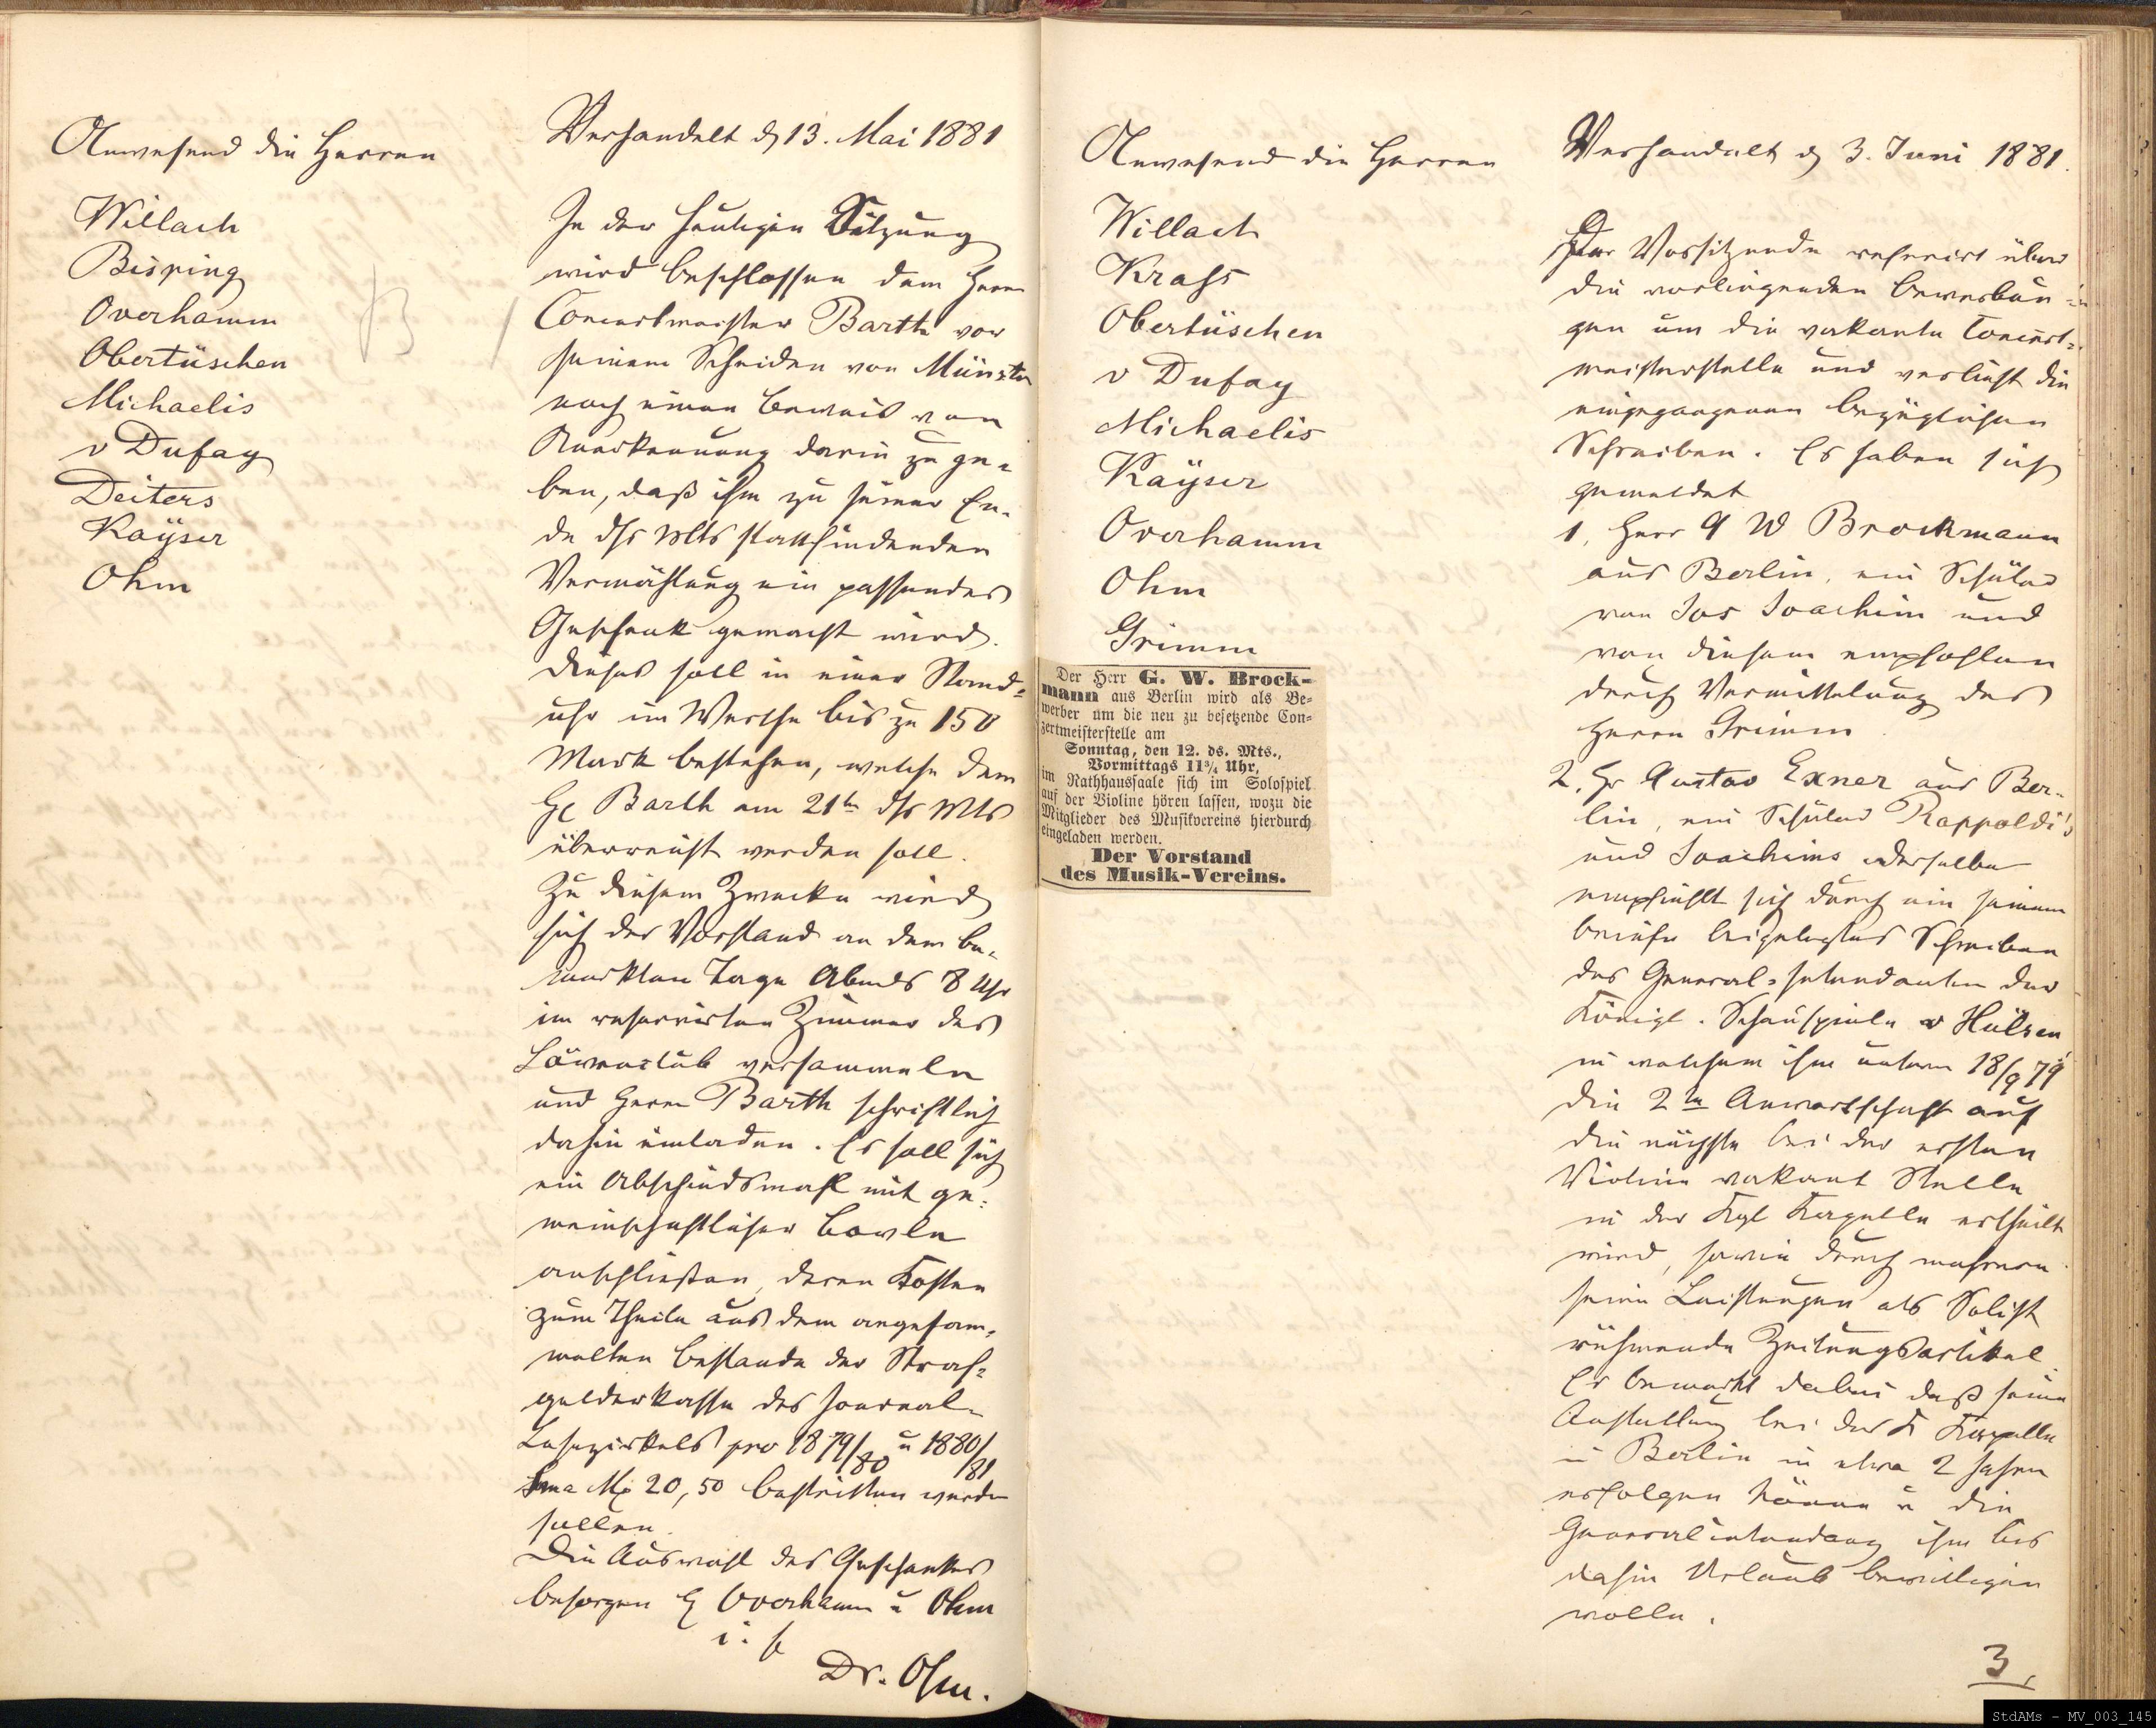 Anwesend die Herren
Willach
Bisping
Overhamm
Obertüschen
Michaelis
v Dufay
Deiters
Kaÿser
Ohm
Verhandelt d 13. Mai 1881
In der heutigen Sitzung
wird beschlossen dem Herrn
Concertmeister Barth vor
seinem Scheiden von Münster
noch einen Beweis von
Anerkennung darin zu ge-
ben, daß ihm zu seiner En-
de dss Mts stattfindenden
Vermählung ein passendes
Geschenk gemacht wird.
Dieses soll in einer Stand-
uhr im Werthe bis zu 150
Mark bestehen, welche dem
H Barth am 21ten dss Mts
überreicht werden soll.
Zu diesem Zwecke wird
sich der Vorstand an dem be-
merkten Tage Abends 8 Uhr
im reservirten Zimmer des
Löwenclub versammeln
und Herrn Barth schriftlich
dahin einladen. Es soll sich
ein Abschiedsmahl mit ge-
meinschaftlicher Bowle
anschließen, deren Kosten
zum Theile aus dem angesam-
melten Bestande der Straf-
gelderkasse des Journal-
Lesezirkels pro 1879/80 u 1880/81
Sma Mk 20,50 bestritten werden
sollen.
Die Auswahl des Geschenkes
besorgen H Overhamm u Ohm
Dr. Ohm.
Anwesend die Herren
Willach
Krass
Obertüschen
v Dufay
Michaelis
Kaÿser
Overhamm
Ohm
Grimm
Der Herr G. W. Brock-
mann aus Berlin wird als Be-
werber um die neu zu besetzende Con-
zertmeisterstelle am
Sonntag, den 12. ds. Mts.,
Vormittags 11¾ Uhr,
im Rathhaussaale sich im Solospiel
auf der Violine hören lassen, wozu die
Mitglieder des Musikvereins hierdurch
eingeladen werden.
Der Vorstand
des Musik-Vereins.
Verhandelt d 3. Juni 1881.
Der Vorsitzende referirt über
die vorliegenden Bewerbun-
gen um die vakante Concert-
meisterstelle und verliest die
eingegangenen bezüglichen
Schreiben. Es haben sich
gemeldet
1, Herr G W Brockmann
aus Berlin, ein Schüler
von Jos Joachim und
von diesem empfohlen
durch Vermittelung des
Herrn Grimm
2. Hr Gustav Exner aus Ber-
lin, ein Schüler Rappoldi's
und Joachims derselbe
empfiehlt sich durch ein seinem
Briefe beigelegtes Schreiben
des General-Intendanten der
Königl. Schauspiele v Hülsen
in welchem ihm unterm 18/9 79
die 2te Anwartschaft auf
die nächste bei der ersten
Violine vakant Stelle
in der Kgl Kapelle ertheilt
wird, sowie durch mehrere
seine Leistungen als Solist
rühmende Zeitungsartikel.
Er bemerkt dabei daß seine
Anstellung bei der K Kapelle
in Berlin in etwa 2 Jahren
erfolgen könne u die
Generalintendanz ihm bis
dahin Urlaub bewilligen
wolle.
3,
StdAMs - MV_003_145